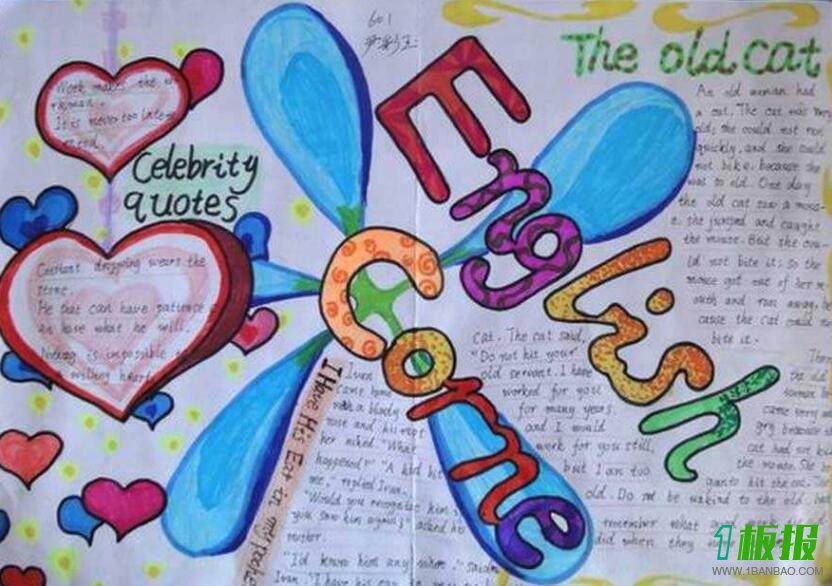 601
English
Come
The old cat
Celebrity
quotes
Work makes the
It is never too late
mend.
Constant dropping wears the
stone.
He that can have patience
can have what he will.
Nothing is impossible
a willing heart
I Have His Ear in my pocket
Ivan
came home
with a bloody
nose and his
her asked "What
happened?" "A kid bit
me," replied Ivan.
"Would you recognize him
you saw him again?" asked his
mother.
"I'd know him any where," said
Ivan. "I have his ear
An old woman had
a cat. The cat was
old; she could not run
quickly, and she could
not bite, because she
was so old. One day
the old cat saw a mous-
e. she jumped and caught
the mouse. But she cou-
ld not bite it; so the
mouse got out of her m-
outh and ran away, be
cause the cat could
bite it.
Then
the old
woman be
came very an
gry because the
cat had not
the mouse. She be
gan to hit the cat. The
cat. The cat said,
"Do not hit your
old servant. I have
worked for you
for many years.
and I would
work for you still,
but I am too
old. Do not be unkind to the old,
remember what
did when they
1板报
WWW.1BANBAO.COM